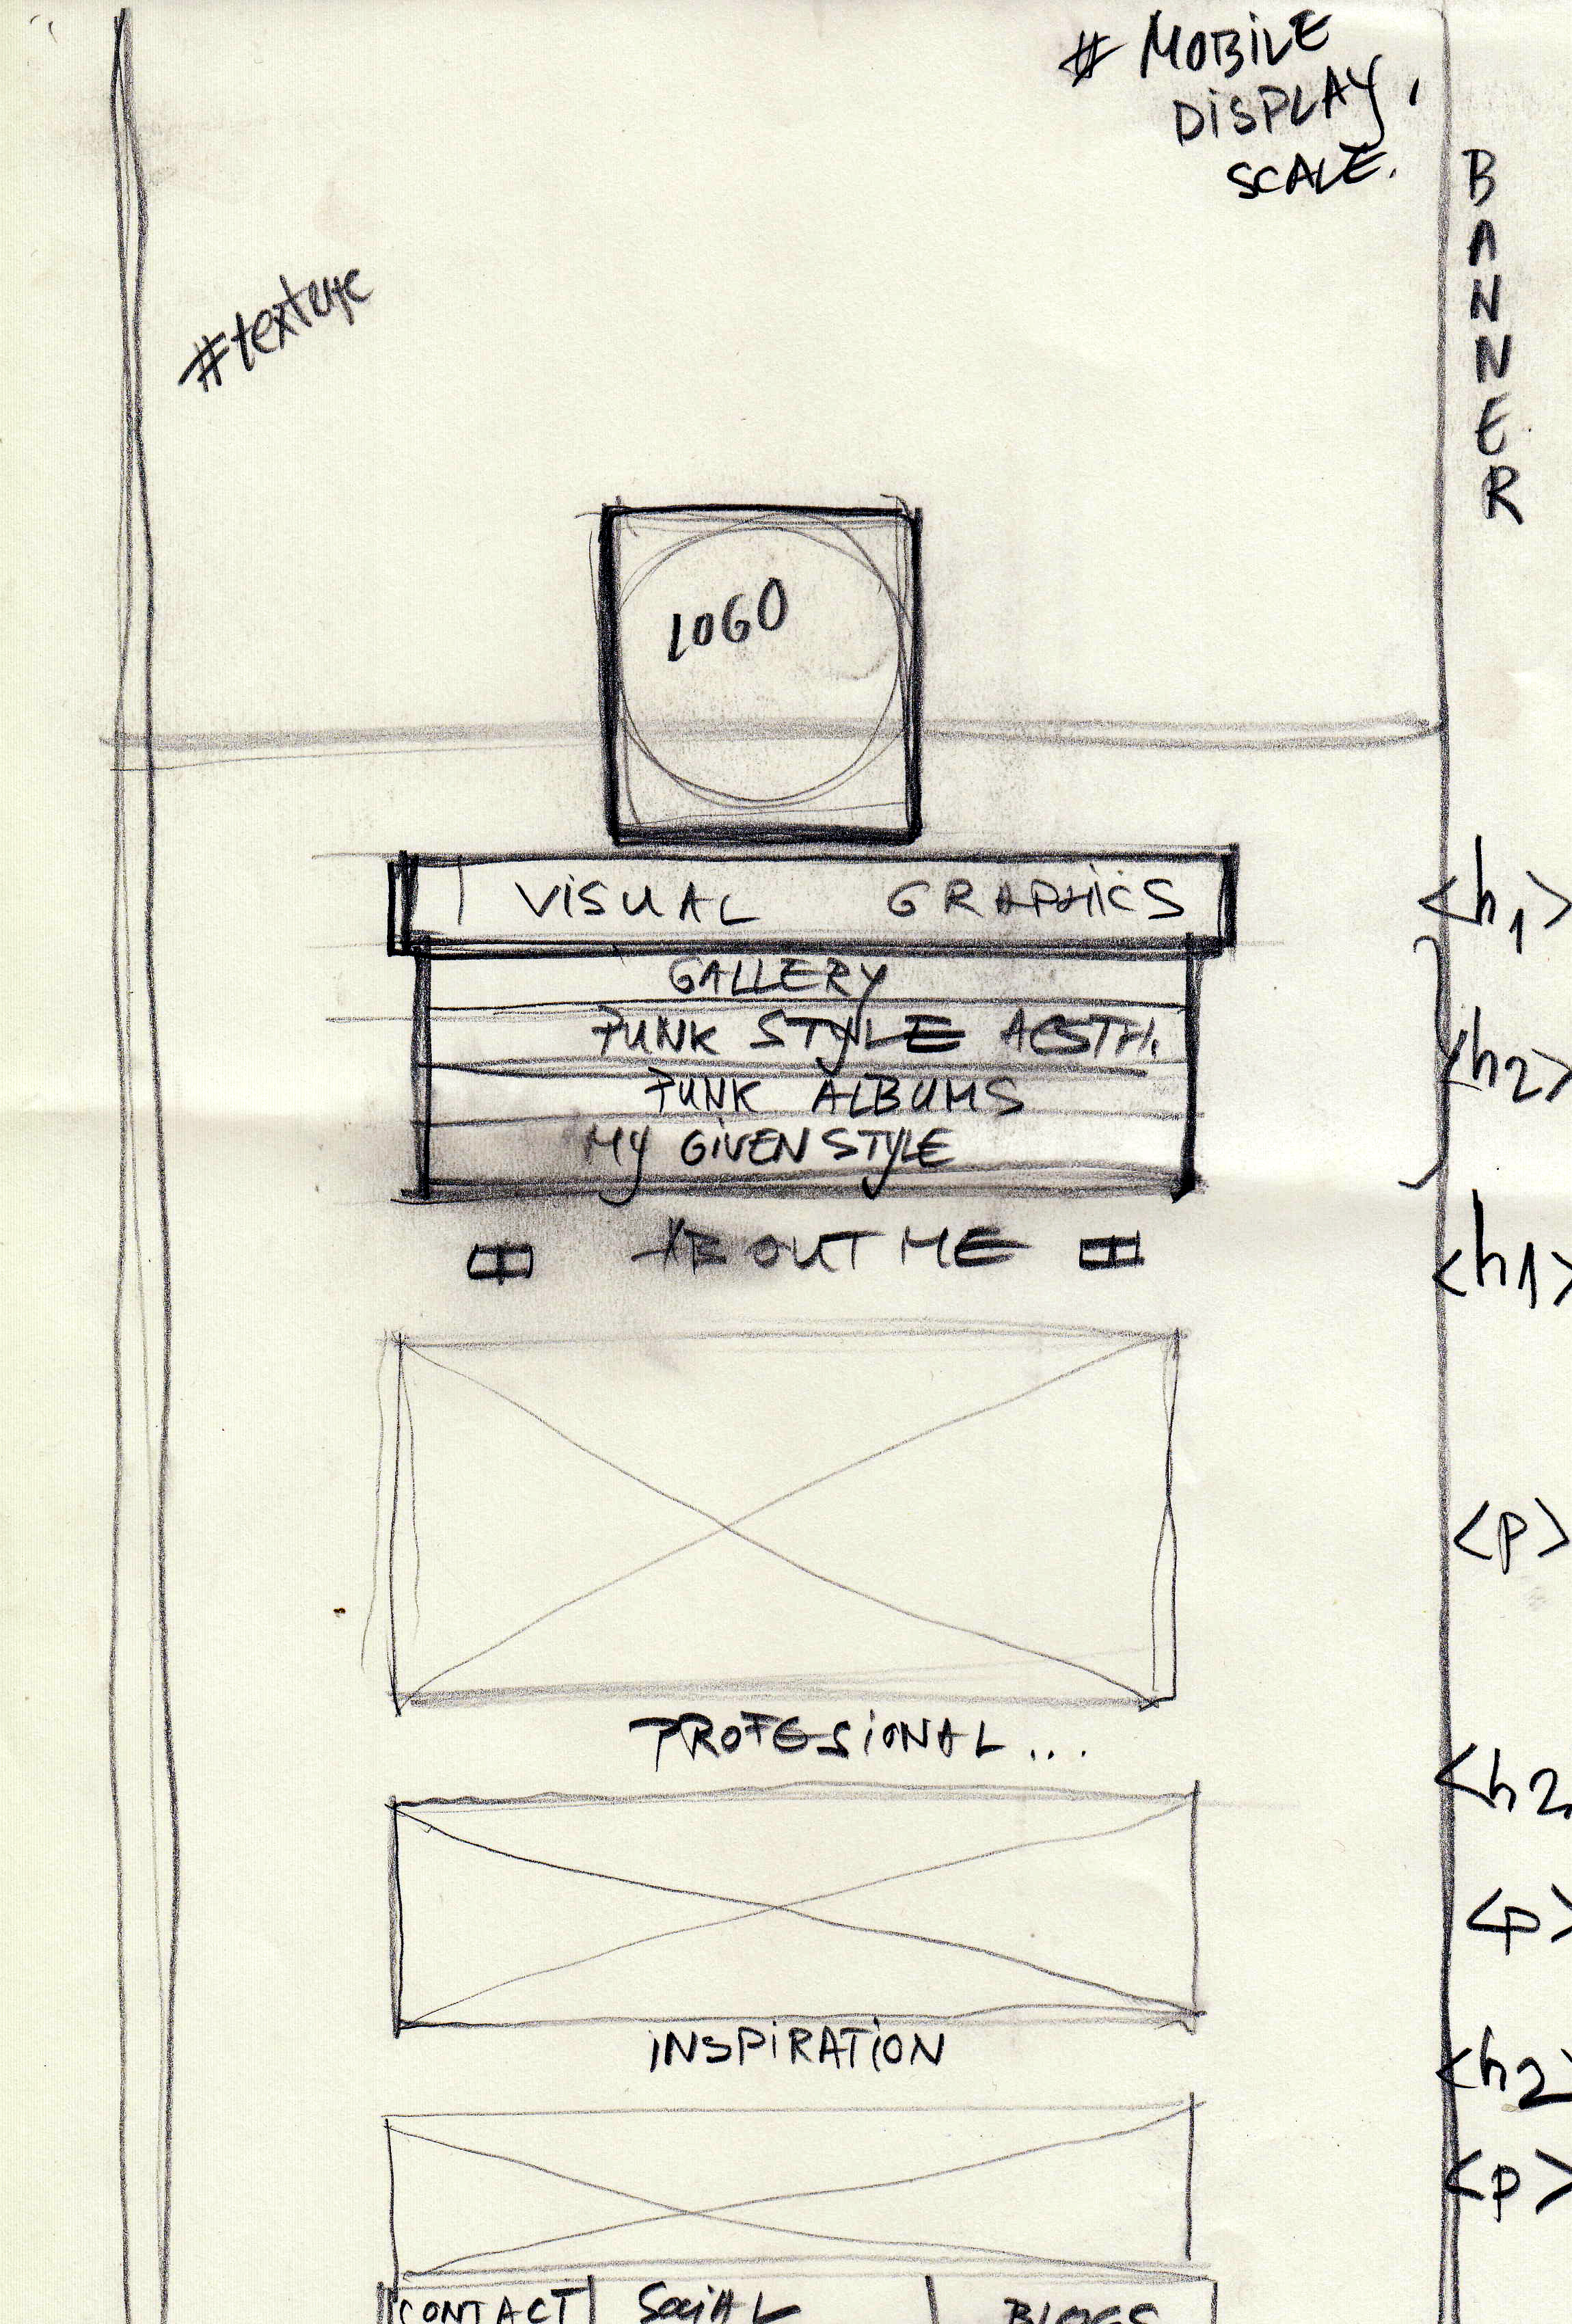 # MOBILE
DISPLAY,
SCALE.
BANNER
#texture
LOGO
VISUAL GRAPHICS
<h1>
GALLERY
PUNK STYLE AESTH.
<h2>
PUNK ALBUMS
MY GIVEN STYLE
ABOUT ME
<h1>
<p>
PROFESIONAL...
<h2
<p>
INSPIRATION
<h2>
<p>
CONTACT SOCIAL BLOGS